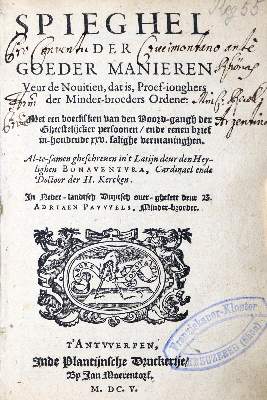 SPIEGHEL
DER
GOEDER MANIEREN
Veur de Novitien, dat is, Proef-ionghers
der Minder-broeders Ordene:
Met een boecxken van den Voordt-gangh der
Gheestelijcker persoonen / ende eenen brief
in-houdende xxv. salighe vermaninghen.
Al-te-samen gheschreven in't Latijn deur den Hey-
lighen BONAVENTVRA, Cardinael ende
Doctoor der H. Kercken.
In Neder-landtsch Duytsch over-gheset deur B.
ADRIAEN PAVVVELS, Minder-broeder.
T'ANTVVERPEN,
Inde Plantijnsche Druckerije/
By Jan Moerentorf.
M. DC. V.